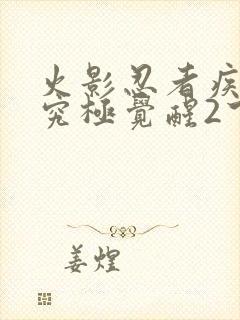 火影忍者疾
究極覺醒2
姜煌